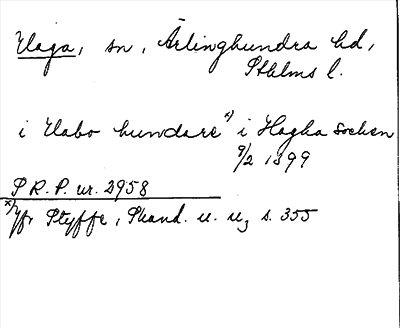 Haga, sn, Ärlinghundra hd,
Sthlms l.
i Habo hundare x) i Hagha Socken
9/2 1399
P R. P. nr. 2958
x) Jfr Styffe, Skand. u. u, s. 355